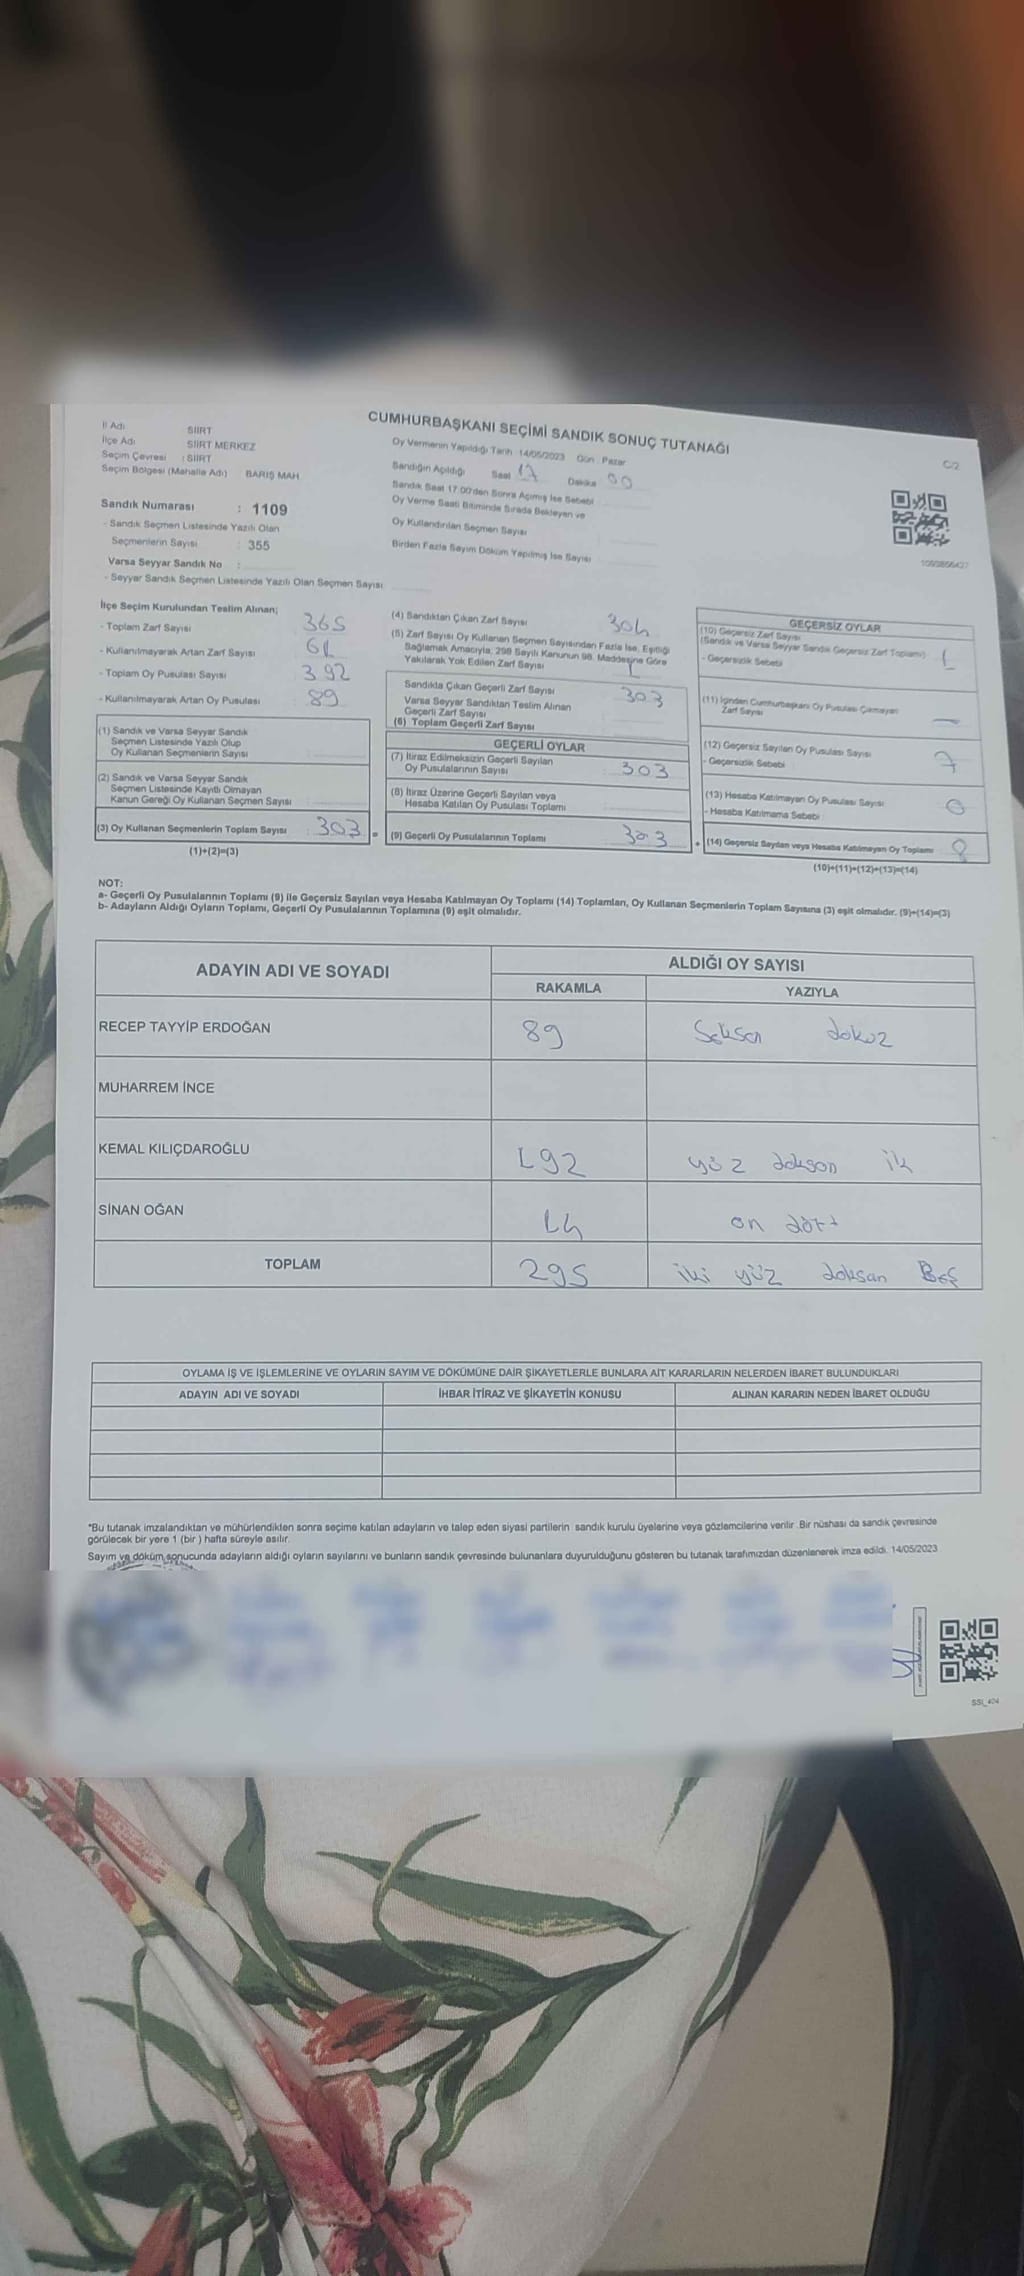 CUMHURBAŞKANI SEÇİMİ SANDIK SONUÇ TUTANAĞI
C/2
İl Adı SİİRT
İlçe Adı SİİRT MERKEZ
Seçim Çevresi : SİİRT
Seçim Bölgesi (Mahalle Adı) : BARIŞ MAH.
Sandık Numarası : 1109
- Sandık Seçmen Listesinde Yazılı Olan
Seçmenlerin Sayısı : 355
Varsa Seyyar Sandık No :
- Seyyar Sandık Seçmen Listesinde Yazılı Olan Seçmen Sayısı
Oy Vermenin Yapıldığı Tarih : 14/05/2023 Gün : Pazar
Sandığın Açıldığı Saat 17 Dakika 00
Sandık Saat 17:00'den Sonra Açılmış İse Sebebi
Oy Verme Saati Bitiminde Sırada Bekleyen ve
Oy Kullandırılan Seçmen Sayısı
Birden Fazla Sayım Döküm Yapılmış İse Sayısı
1093856427
İlçe Seçim Kurulundan Teslim Alınan;
- Toplam Zarf Sayısı 365
- Kullanılmayarak Artan Zarf Sayısı 61
- Toplam Oy Pusulası Sayısı 392
- Kullanılmayarak Artan Oy Pusulası 89
(1) Sandık ve Varsa Seyyar Sandık
Seçmen Listesinde Yazılı Olup
Oy Kullanan Seçmenlerin Sayısı
(2) Sandık ve Varsa Seyyar Sandık
Seçmen Listesinde Kayıtlı Olmayan
Kanun Gereği Oy Kullanan Seçmen Sayısı
(3) Oy Kullanan Seçmenlerin Toplam Sayısı : 303 =
(1)+(2)=(3)
(4) Sandıktan Çıkan Zarf Sayısı 304
(5) Zarf Sayısı Oy Kullanan Seçmen Sayısından Fazla İse, Eşitliği
Sağlamak Amacıyla, 298 Sayılı Kanunun 98. Maddesine Göre
Yakılarak Yok Edilen Zarf Sayısı 1
Sandıkta Çıkan Geçerli Zarf Sayısı 303
Varsa Seyyar Sandıktan Teslim Alınan
Geçerli Zarf Sayısı
(6) Toplam Geçerli Zarf Sayısı
GEÇERLİ OYLAR
(7) İtiraz Edilmeksizin Geçerli Sayılan
Oy Pusulalarının Sayısı : 303
(8) İtiraz Üzerine Geçerli Sayılan veya
Hesaba Katılan Oy Pusulası Toplamı
(9) Geçerli Oy Pusulalarının Toplamı 303 +
GEÇERSİZ OYLAR
(10) Geçersiz Zarf Sayısı
(Sandık ve Varsa Seyyar Sandık Geçersiz Zarf Toplamı) 1
- Geçersizlik Sebebi
(11) İçinden Cumhurbaşkanı Oy Pusulası Çıkmayan
Zarf Sayısı —
(12) Geçersiz Sayılan Oy Pusulası Sayısı 7
- Geçersizlik Sebebi
(13) Hesaba Katılmayan Oy Pusulası Sayısı 0
- Hesaba Katılmama Sebebi
(14) Geçersiz Sayılan veya Hesaba Katılmayan Oy Toplamı 8
(10)+(11)+(12)+(13)=(14)
NOT:
a- Geçerli Oy Pusulalarının Toplamı (9) ile Geçersiz Sayılan veya Hesaba Katılmayan Oy Toplamı (14) Toplamları, Oy Kullanan Seçmenlerin Toplam Sayısına (3) eşit olmalıdır. (9)+(14)=(3)
b- Adayların Aldığı Oyların Toplamı, Geçerli Oy Pusulalarının Toplamına (9) eşit olmalıdır.
ADAYIN ADI VE SOYADI ALDIĞI OY SAYISI
RAKAMLA YAZIYLA
RECEP TAYYİP ERDOĞAN 89 Seksen dokuz
MUHARREM İNCE
KEMAL KILIÇDAROĞLU 192 yüz doksan ik
SİNAN OĞAN 14 on dört
TOPLAM 295 iki yüz doksan Beş
OYLAMA İŞ VE İŞLEMLERİNE VE OYLARIN SAYIM VE DÖKÜMÜNE DAİR ŞİKAYETLERLE BUNLARA AİT KARARLARIN NELERDEN İBARET BULUNDUKLARI
ADAYIN ADI VE SOYADI İHBAR İTİRAZ VE ŞİKAYETİN KONUSU ALINAN KARARIN NEDEN İBARET OLDUĞU
*Bu tutanak imzalandıktan ve mühürlendikten sonra seçime katılan adayların ve talep eden siyasi partilerin sandık kurulu üyelerine veya gözlemcilerine verilir. Bir nüshası da sandık çevresinde
görülecek bir yere 1 (bir ) hafta süreyle asılır.
Sayım ve döküm sonucunda adayların aldığı oyların sayılarını ve bunların sandık çevresinde bulunanlara duyurulduğunu gösteren bu tutanak tarafımızdan düzenlenerek imza edildi. 14/05/2023
SSI_404